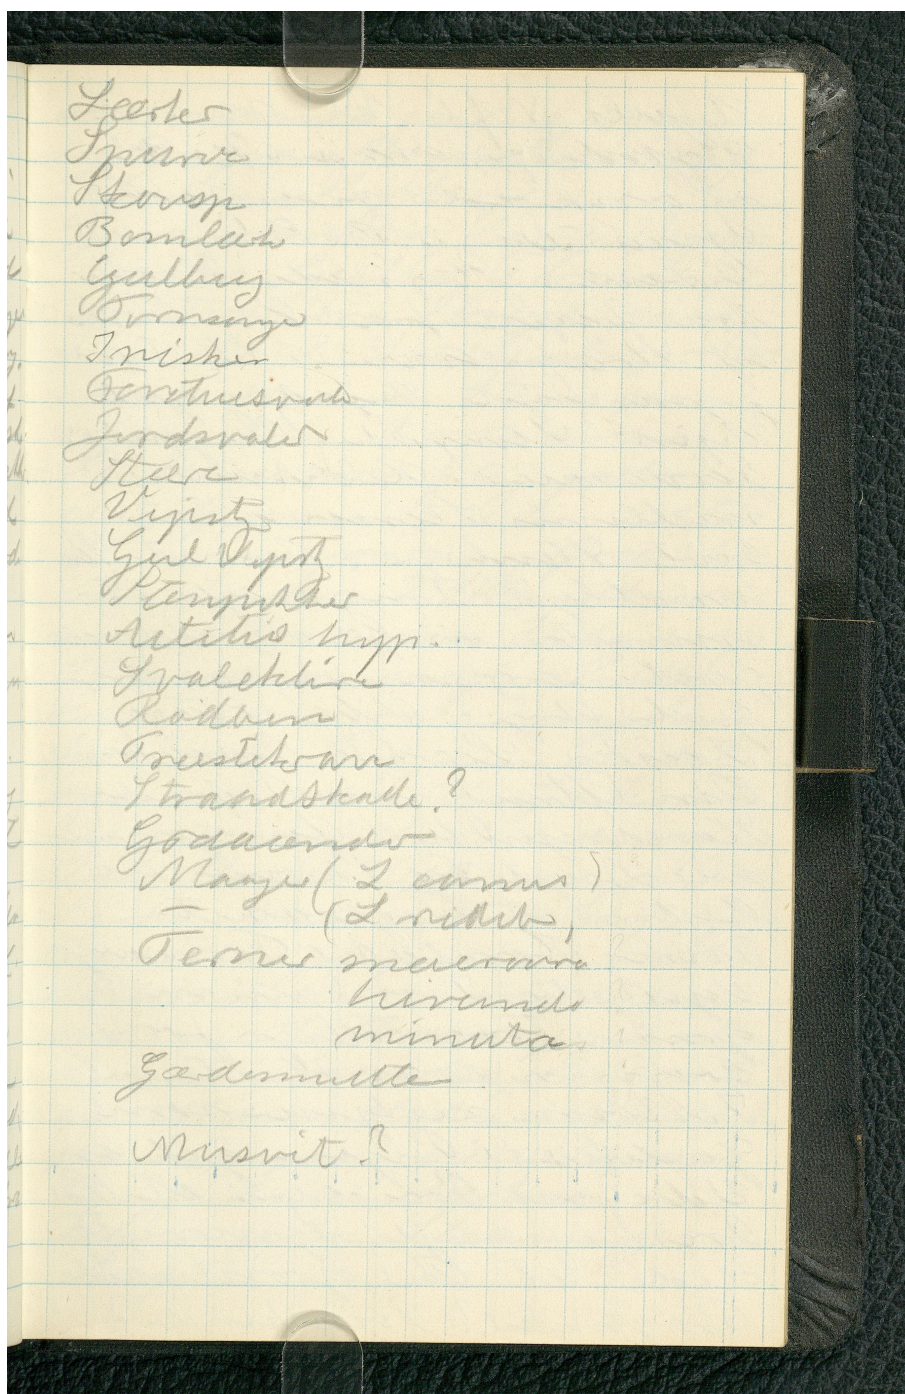 Lærker
Spurve
Skovsp
Bomlærk
Gulbug
Tornsanger
Irisker
Forstuesvale
Jordsvaler
Stære
Vipstj
Gul Vipstj
Stenpikker
Actitis hyp.
Svaleklire
Rödben
Truestekvare
Strandskade?
Gråænder
Maager (L canus)
— (L ridib,
Terner macroura
hirundo
minuta
Gærdesmutte
Musvit?